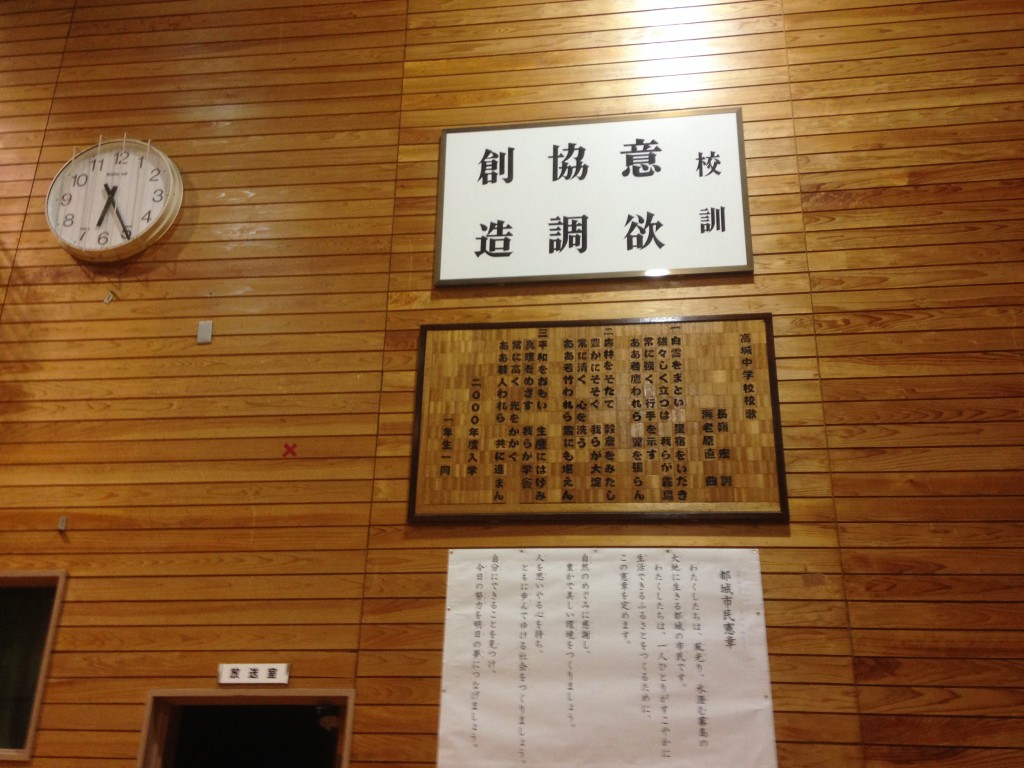 12
1
2
3
4
5
6
7
8
9
10
11
校訓
意欲
協調
創造
高城中学校校歌
長嶺 宏 詞
海老原直 曲
一 白雲をまとい 星宿をいただき
雄々しく立つは 我らが霧島
常に強く 行手を示す
ああ若鷹われら 翼を張らん
二 森林をそだて 穀倉をみたし
豊かにそそぐ 我らが大淀
常に清く 心を洗う
ああ若竹われら 霜にも堪えん
三 平和をおもい 生産にはげみ
真理をめざす 我らが学舎
常に高く 光をかかぐ
ああ若人われら 共に進まん
二〇〇〇年度入学
一年生一同
都城市民憲章
わたくしたちは、風光り、水澄む霧島の
大地に生きる都城の市民です。
わたくしたちは、一人ひとりがすこやかに
生活できるふるさとをつくるために、
この憲章を定めます。
自然のめぐみに感謝し、
豊かで美しい環境をつくりましょう。
人を思いやる心を持ち、
ともに歩んでゆける社会をつくりましょう。
自分にできることを見つけ、
今日の努力を明日の夢につなげましょう。
放送室